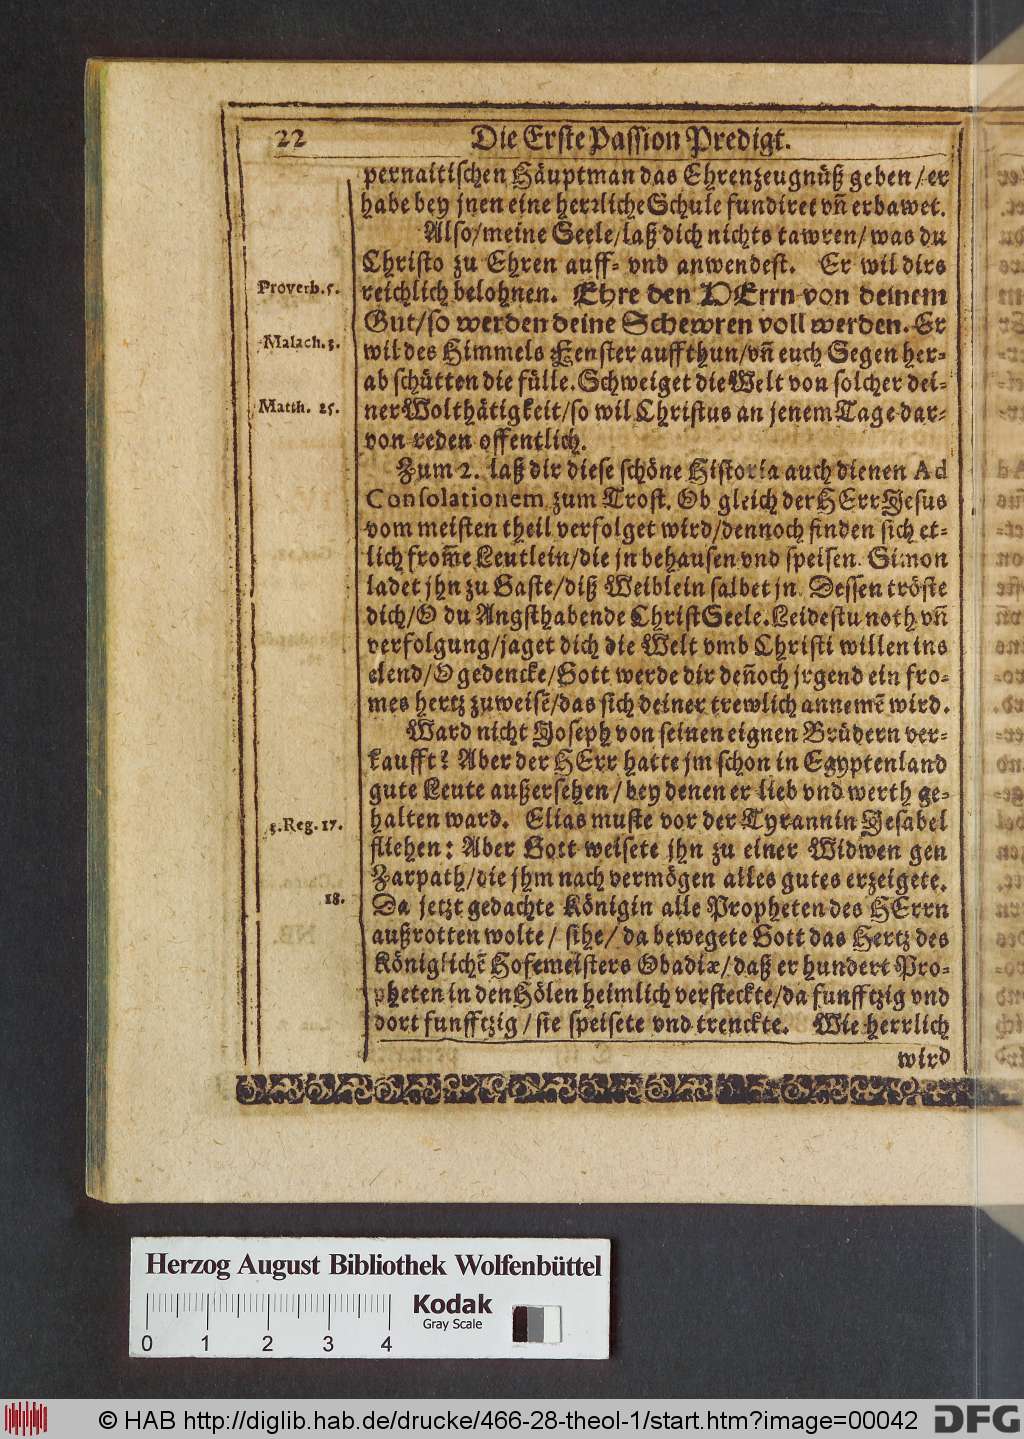 22 Die Erste Passion Predigt.
pernaitischen Häuptman das Ehrenzeugnüß geben / er
habe bey jnen eine herrliche Schule fundiret vñ erbawet.
Also/meine Seele/laß dich nichts tawren/was du
Christo zu Ehren auff- vnd anwendest. Er wil dirs
Proverb. 5. reichlich belohnen. Ehre den HErrn von deinem
Gut/so werden deine Schewren voll werden. Er
Malach. 3. wil des Himmels Fenster auffthun/vñ euch Segen her-
ab schütten die fülle. Schweiget die Welt von solcher dei-
Matth. 25. ner Wolthätigkeit/so wil Christus an jenem Tage dar-
von reden offentlich.
Zum 2. laß dir diese schöne Historia auch dienen Ad
Consolationem, zum Trost. Ob gleich der HErr Jesus
vom meisten theil verfolget wird/dennoch finden sich et-
lich from̃e Leutlein/die jn behausen vnd speisen. Simon
ladet jhn zu Gaste/diß Weiblein salbet jn. Dessen tröste
dich/O du Angsthabende ChristSeele. Leidestu noth vñ
verfolgung/jaget dich die Welt vmb Christi willen ins
elend/O gedencke/Gott werde dir deñoch jrgend ein fro-
mes hertz zuweisẽ/das sich deiner trewlich annemẽ wird.
Ward nicht Joseph von seinen eignen Brüdern ver-
kaufft? Aber der HErr hatte jm schon in Egyptenland
gute Leute außersehen / bey denen er lieb vnd werth ge-
3. Reg. 17. halten ward. Elias muste vor der Tyrannin Jesabel
fliehen: Aber Gott weisete jhn zu einer Widwen gen
Zarpath/die jhm nach vermögen alles gutes erzeigete.
18. Da jetzt gedachte Königin alle Propheten des HErrn
außrotten wolte / sihe / da bewegete Gott das Hertz des
Königlichẽ Hofemeisters Obadiæ/daß er hundert Pro-
pheten in den Hölen heimlich versteckte/da funfftzig vnd
dort funfftzig / sie speisete vnd trenckte. Wie herrlich
wird
Herzog August Bibliothek Wolfenbüttel
Kodak
Gray Scale
0 1 2 3 4
© HAB http://diglib.hab.de/drucke/466-28-theol-1/start.htm?image=00042
DFG